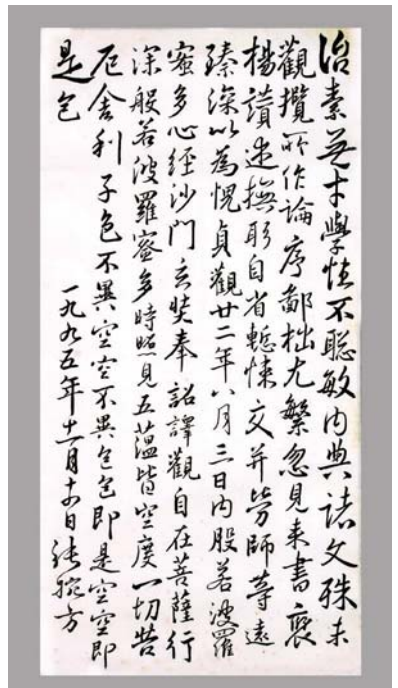 治素无才學性不聰敏內典諸文殊未
觀攬所作論序鄙拙尤繁忽見來書褒
揚讚述撫躬自省慙悚交并勞師等遠
臻深以為愧貞觀廿二年八月三日內般若波羅
蜜多心經沙門玄奘奉詔譯觀自在菩薩行
深般若波羅蜜多時照見五蘊皆空度一切苦
厄舍利子色不異空空不異色色即是空空即
是色
一九九五年十一月日張方